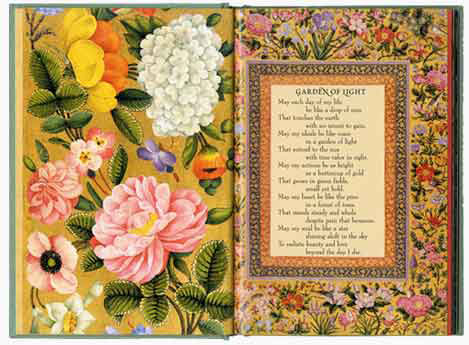 GARDEN OF LIGHT
May each day of my life
be like a drop of rain
That touches the earth
with no intent to gain.
May my ideals be like roses
in a garden of light
That extend to the sun
with true valor in sight.
May my actions be as bright
as a buttercup of gold
That grows in green fields,
small yet bold.
May my heart be like the pine
in a forest of trees
That stands steady and whole
despite pain that bemoans.
May my soul be like a star
shining aloft in the sky
To radiate beauty and love
beyond the day I die.